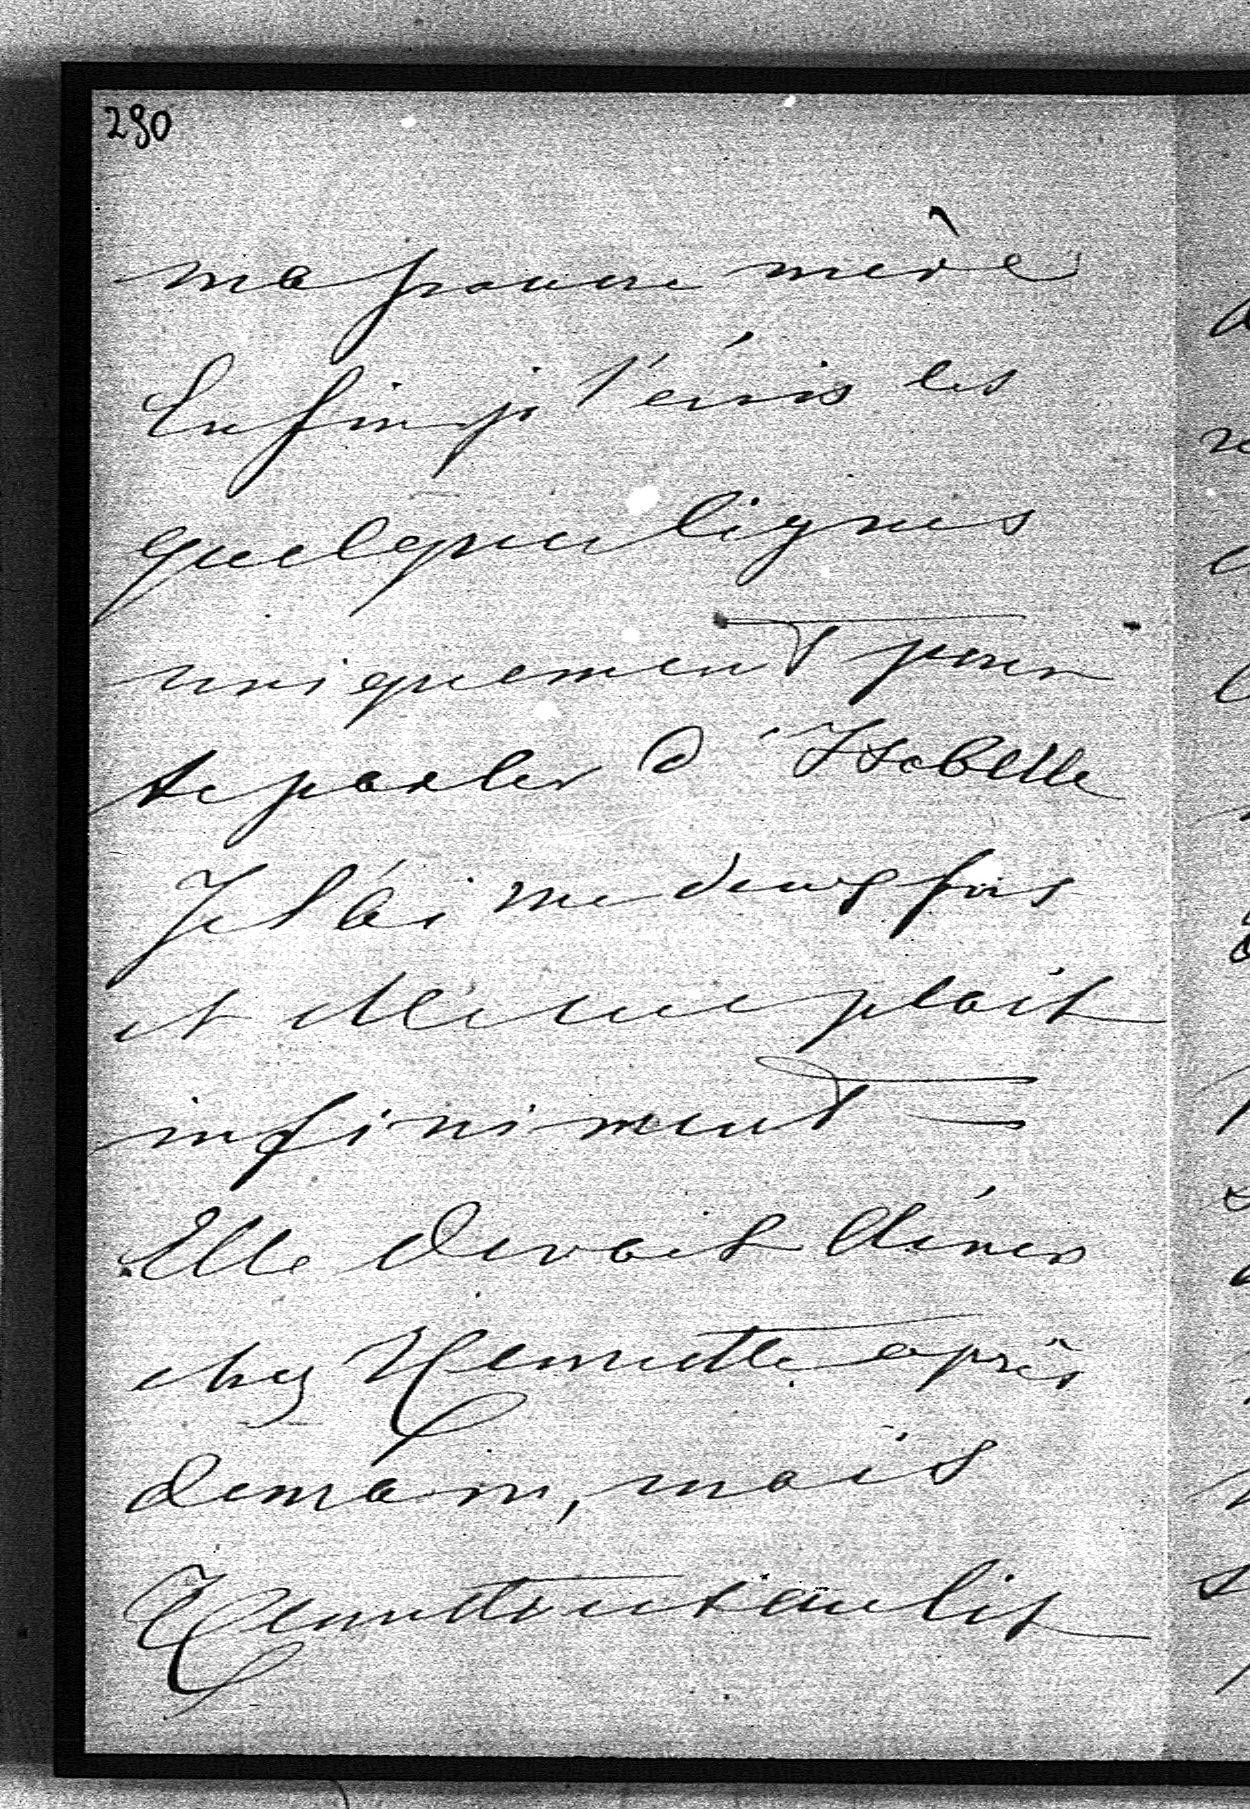 290
ma pauvre mère
Enfin je t'écris les
quelques lignes
uniquement pour
te parler d'Isabelle
Je l'ai vue deux fois
et elle me plait
infiniment —
Elle devait diner
chez Henriette après
demain, mais
Henriette est au lit